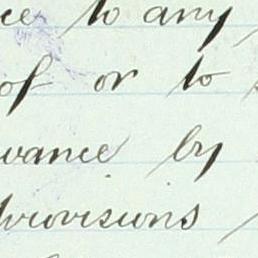 ce to any
of or to
vance by
provisions